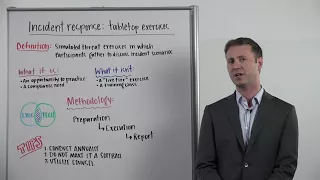 Incident response: tabletop exercise
Definition: Simulated threat exercise in which
participants gather to discuss incident scenario
What it is:
- An opportunity to practice
- A compliance need
What it isn't:
- A "live fire" exercise
- A training class
Methodology:
Preparation
Execution
Report
EXEC TECH
TIPS
1. CONDUCT ANNUALLY
2. DO NOT MAKE IT A SOFTBALL
3. UTILIZE COUNSEL